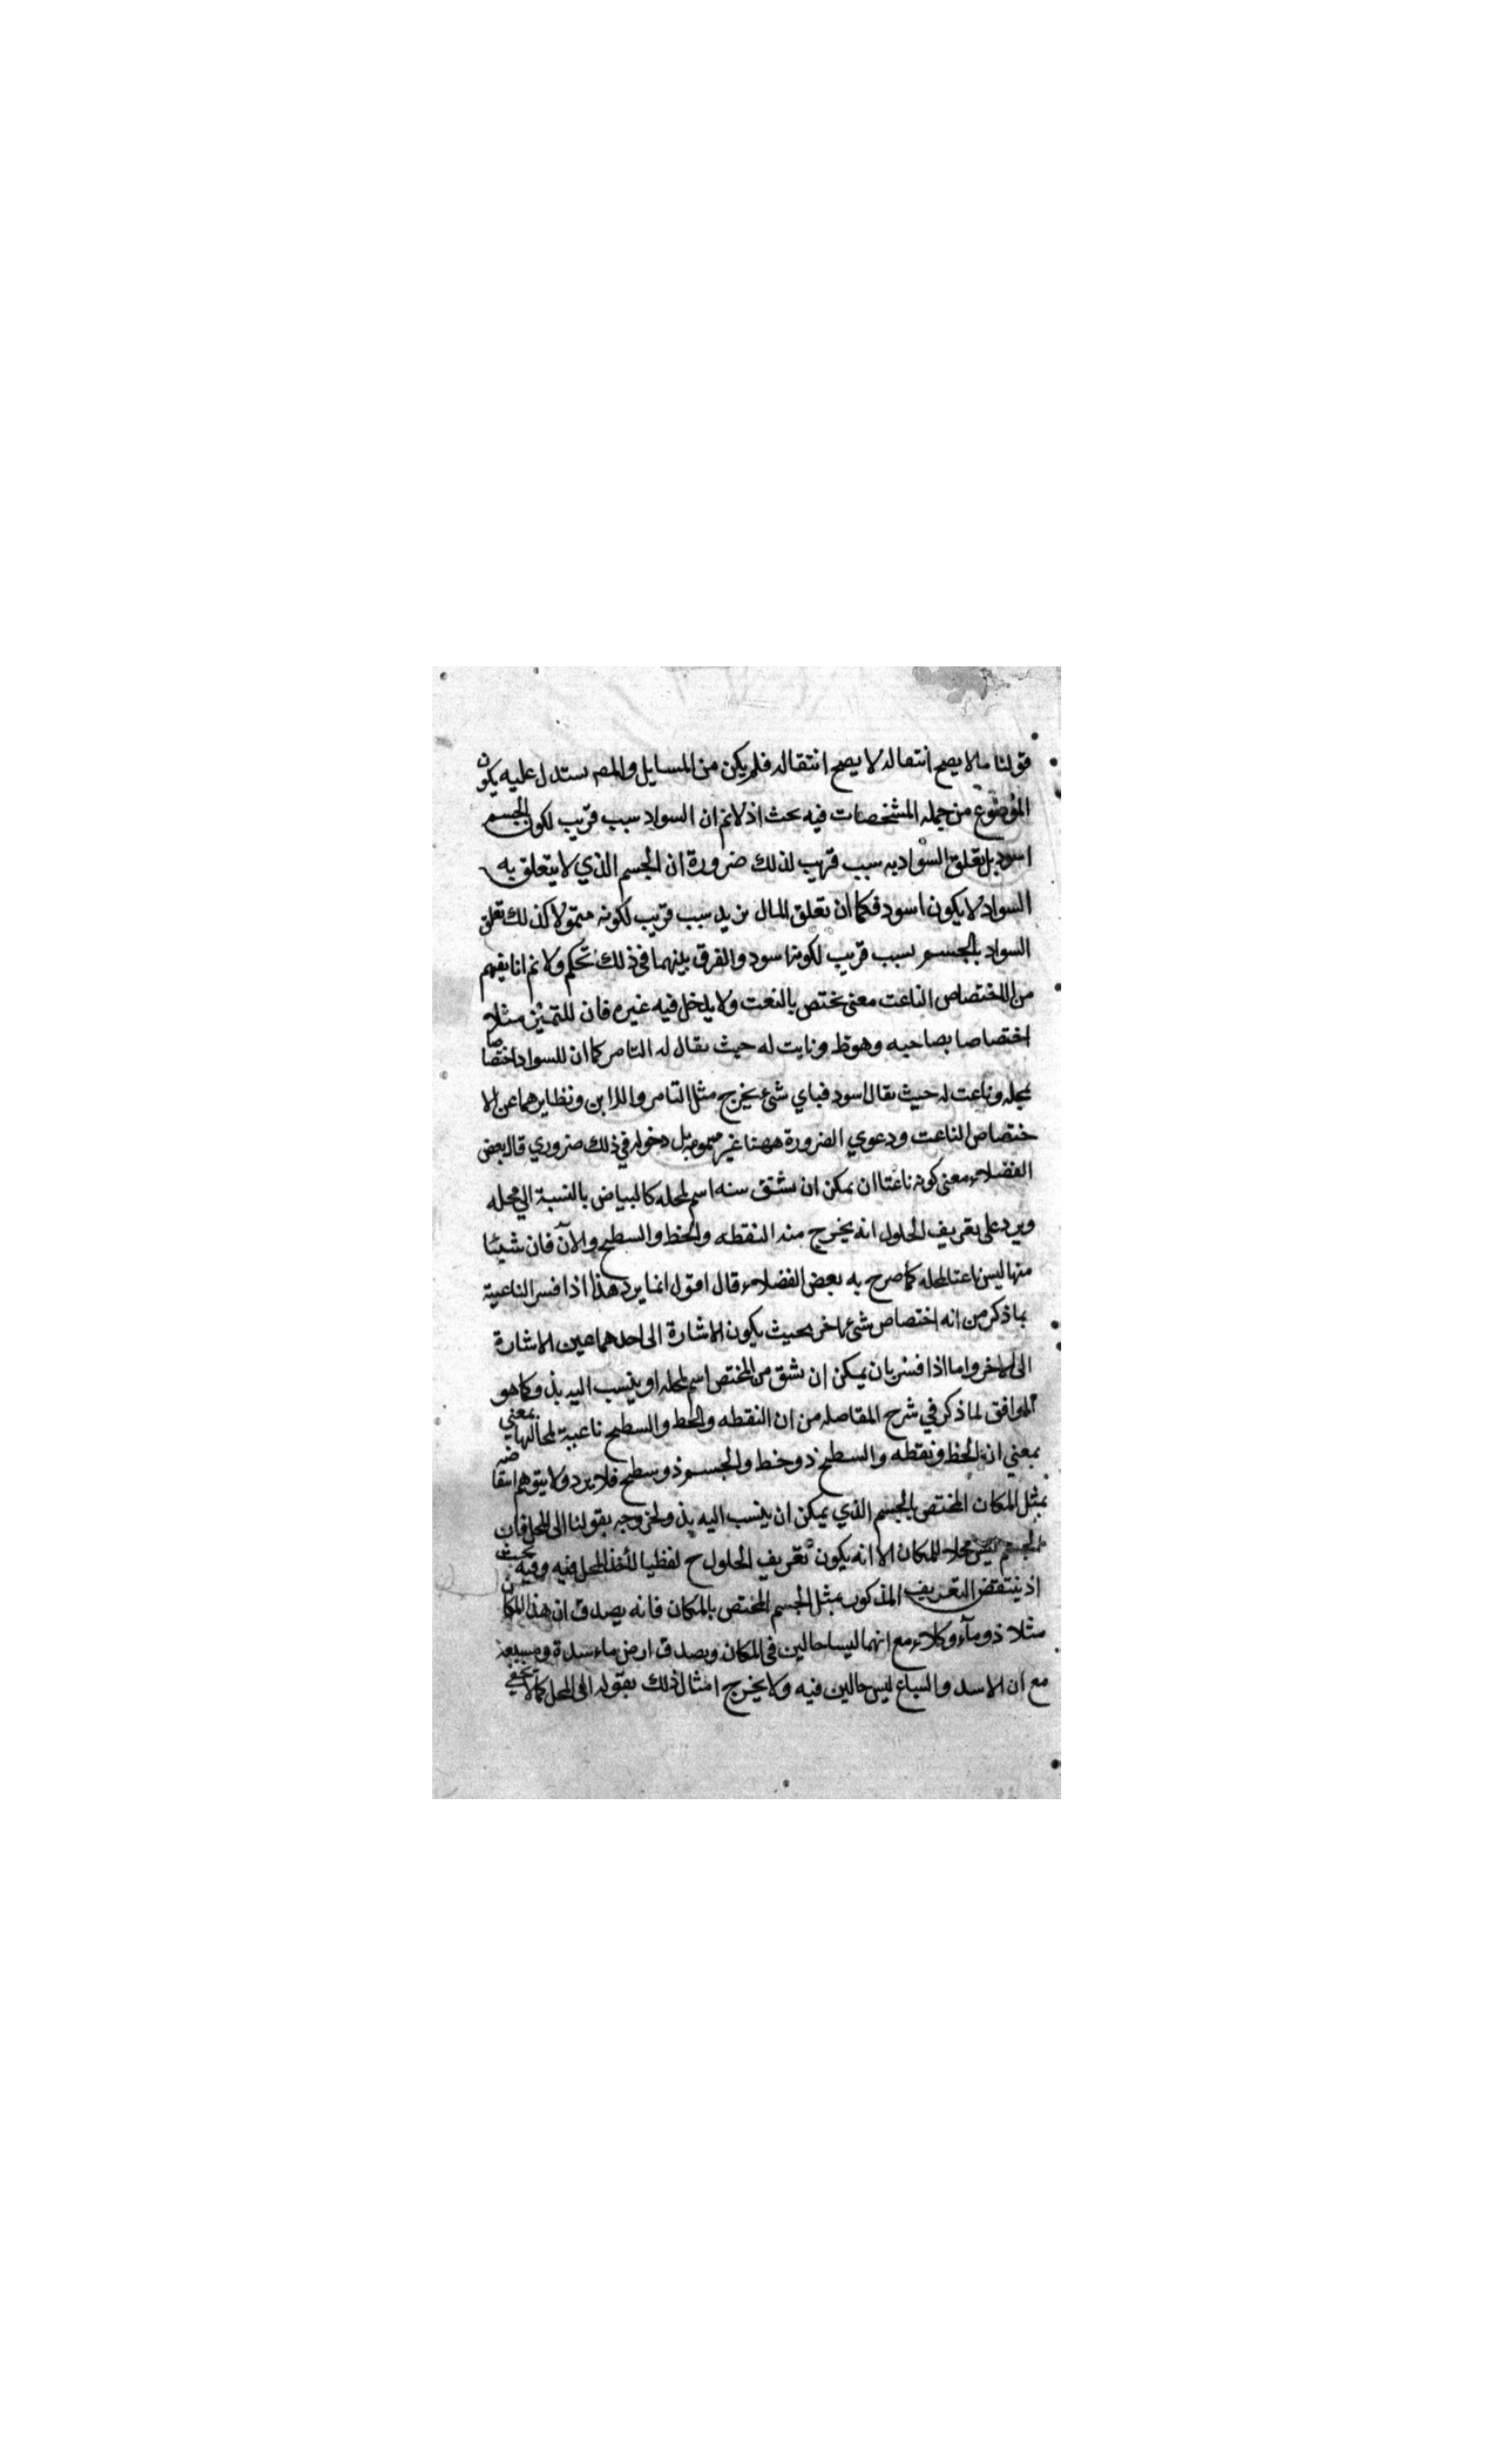 قولنا ما لا يصح انتقاله لا يصح انتقاله فلم يكن من المسايل والمصـ يستدل عليه يكون
الموضوع من جمله المشخصات فيه بحث اذ لانم ان السواد سبب قريب لكون الجسم
اسود بل تعلق السواد به سبب قريب لذلك ضرورة ان الجسم الذي لا يتعلق به
السواد لا يكون اسود فكما ان تعلق المال بزيد سبب قريب لكونه متمولا كذلك تعلق
السواد بالجسم سبب قريب لكونه اسود والفرق بينهما في ذلك تحكم ولانم انا يفهم
من الاختصاص الناعت معنى يختص بالنعت ولا يدخل فيه غيره فان للتمر مثلا
اختصاصا بصاحبه وهو ظ وناعت له حيث يقال له التامر كما ان للسواد اختصاصا
بمحله وناعت له حيث يقال اسود فباي شئ يخرج مثل التامر واللابن ونظايرهما عن الا
ختصاص الناعت ودعوي الضرورة ههنا غير مسموعة بل دخوله في ذلك ضروري قال بعض
الفضلاء معنى كونه ناعتا ان يمكن ان يشتق منه اسم لمحله كالبياض بالنسبة الي محله
ويرد على تعريف الحلول انه يخرج منه النقطه والخط والسطح والآن فان شيئا
منها ليس ناعتا لمحله كما صرح به بعض الفضلاء وقال اقول انما يرد هذا اذا فسر الناعتية
بما ذكر من انه اختصاص شئ باخر بحيث يكون الاشارة الى احدهما عين الاشارة
الى الاخر واما اذا فسر بان يمكن ان يشق من المختص اسم لمحله او ينسب اليه بذو كما هو
الموافق لما ذكر في شرح المقاصد من ان النقطه والخط والسطح ناعتية لمحالها بمعني
بمعني ان الخط ذو نقطه والسطح ذو خط والجسم ذو سطح فلا يرد ولا يتوهم انتقاضه
بمثل المكان المختص بالجسم الذي يمكن ان ينسب اليه بذو لخروجه بقولنا الى المحل فان
الجسم ليس محلا للمكان الا انه يكون تعريف الحلول ح لفظيا لاخذ المحل فيه وفيه بحث
اذ ينتقض التعريف المذكور بمثل الجسم المختص بالمكان فانه يصدق ان هذا المكان
مثلا ذو ماء وكلاء مع انهما ليسا حالين في المكان ويصدق ارض ماسدة ومسبعة
مع ان الاسد والسباع ليس حالين فيه ولا يخرج امثال ذلك بقوله الى المحل كما لا يخفي